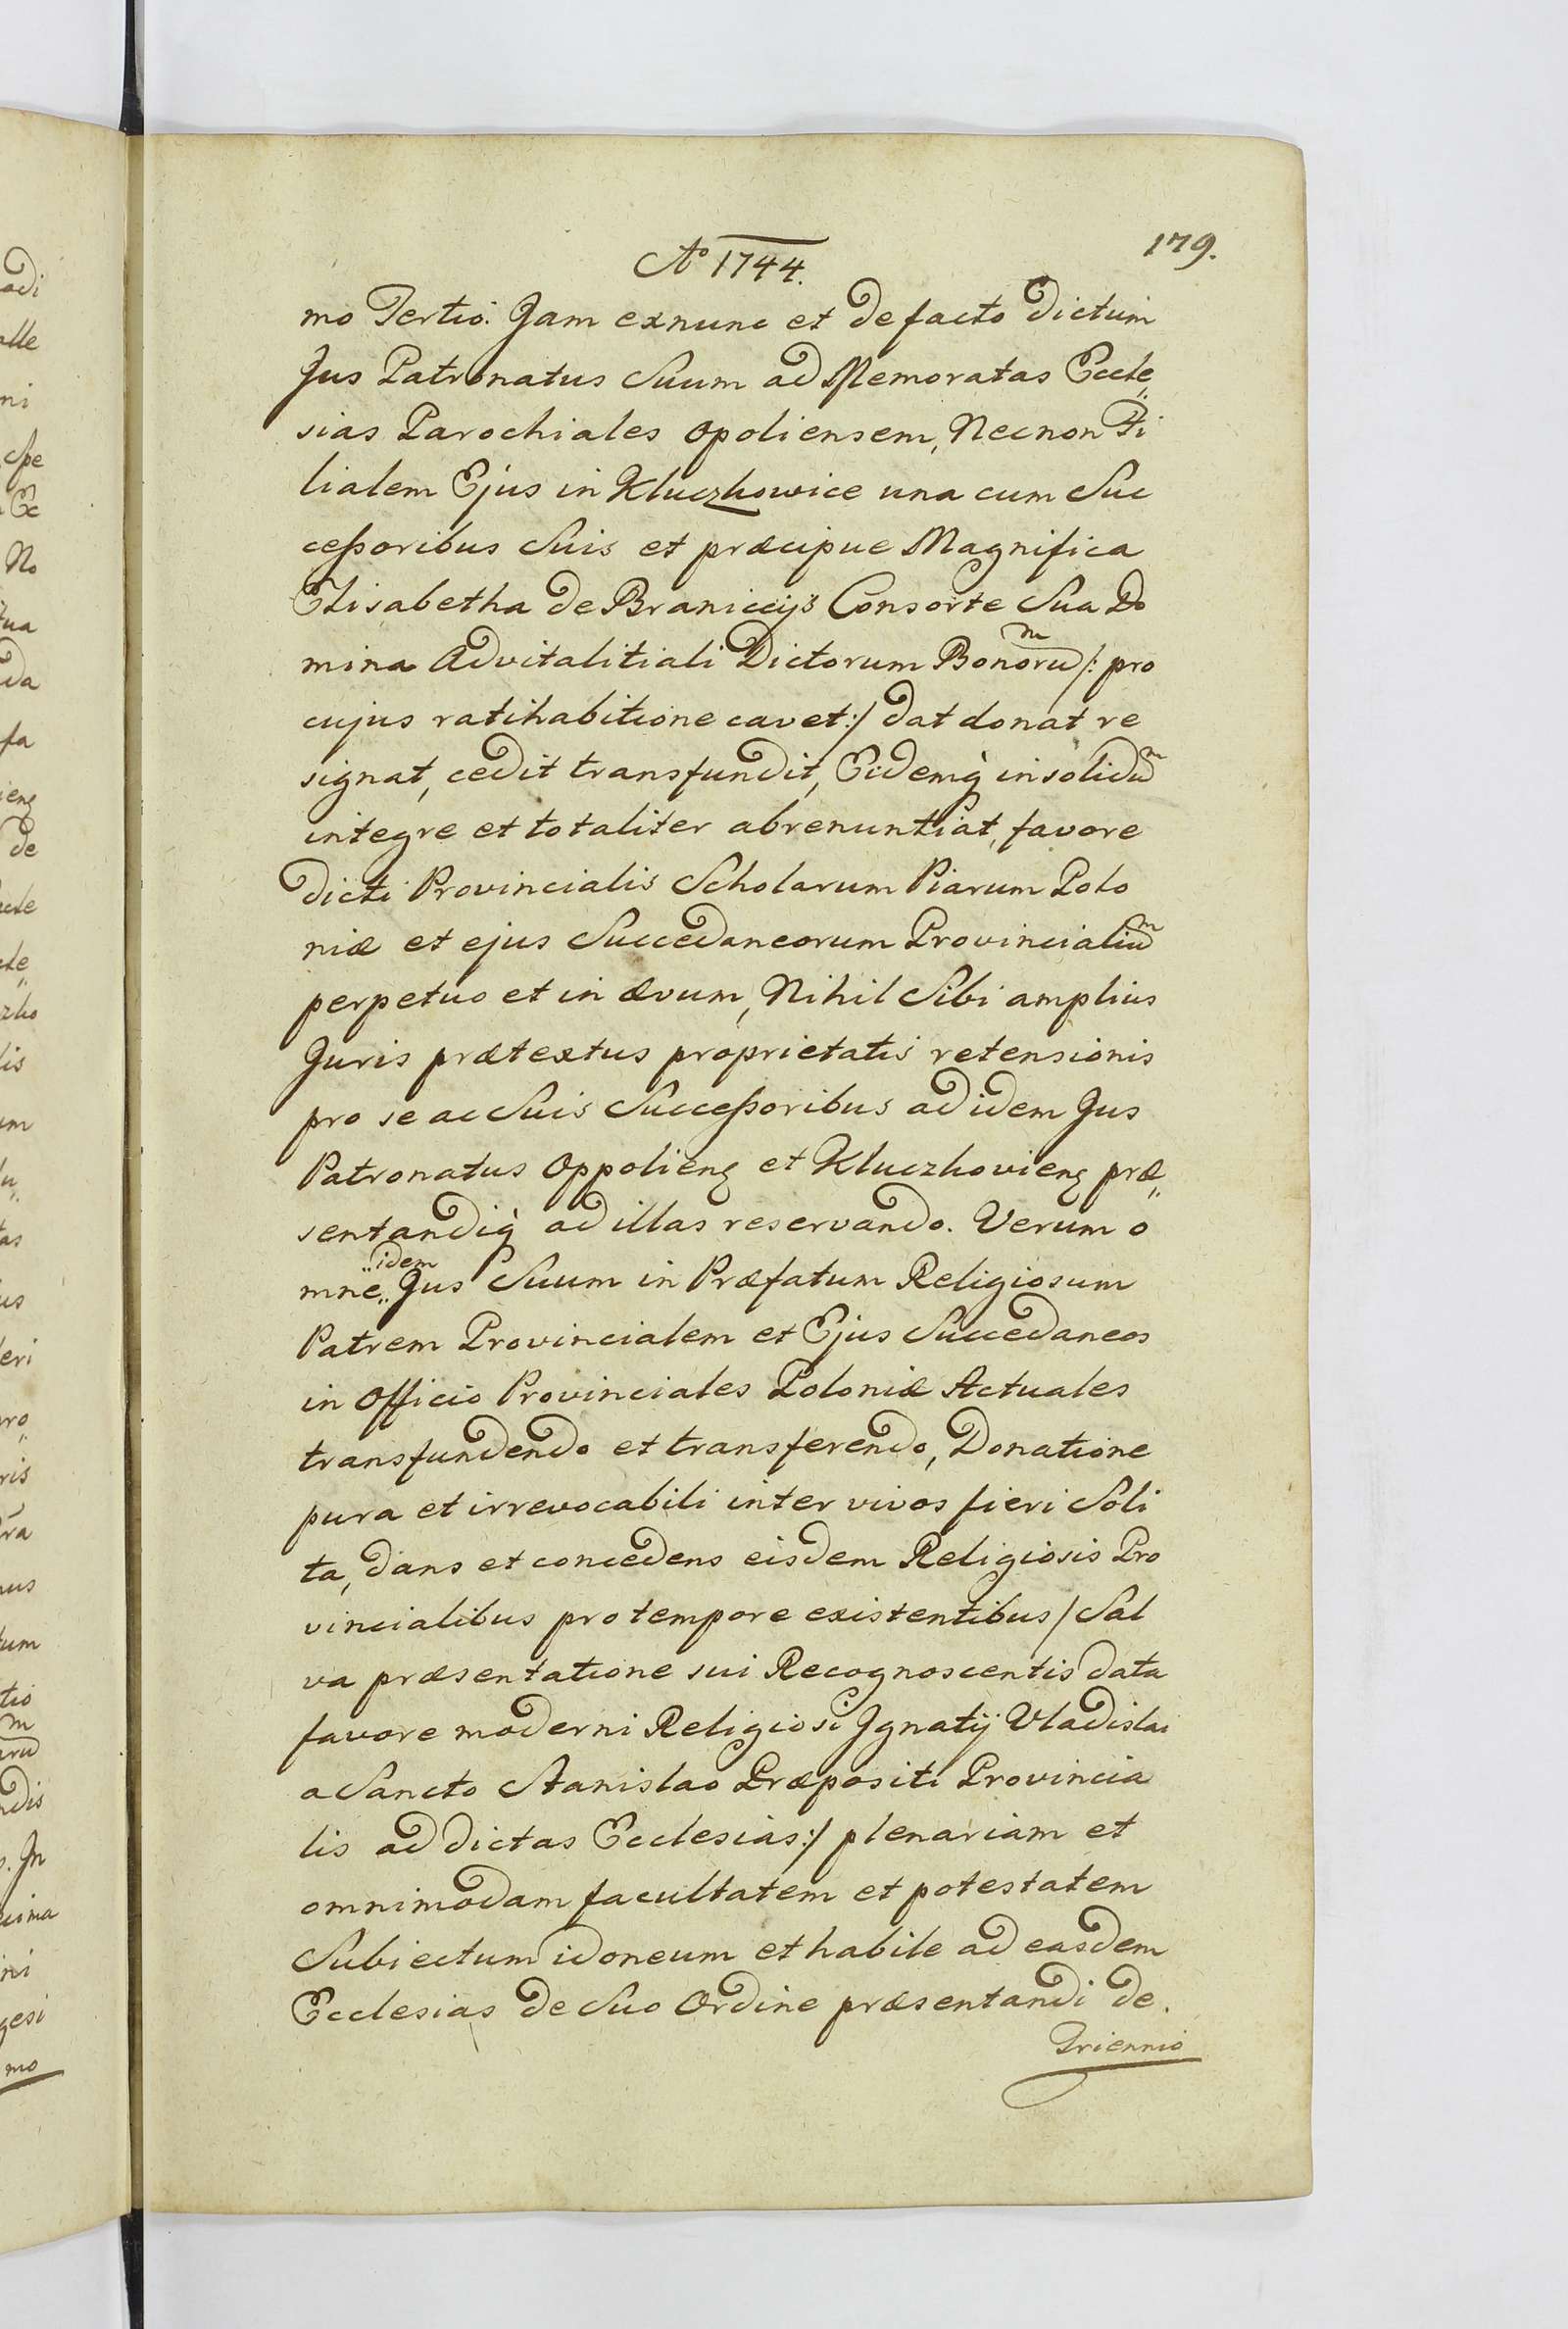 Aº 1744.
179.
mo Tertio. Jam exnunc et de facto dictum
Jus Patronatus Suum ad Memoratas Eccle„
sias Parochiales Opoliensem, Necnon Fi
lialem Ejus in Kluczkowice una cum Suc
ceßoribus Suis et præcipue Magnifica
Elisabetha de Braniccijs Consorte Sua Do
mina Advitalitiali Dictorum Bonoruͫ /: pro
cujus ratihabitione cavet :/ dat donat re
signat, cedit transfundit, Eidemq̀ insoliduͫ
integre et totaliter abrenuntiat, favore
dicti Provincialis Scholarum Piarum Polo
niæ et ejus Succedaneorum Provincialiuͫ
perpetuo et in ævum, Nihil Sibi amplius
Juris prætextus proprietatis retensionis
pro se ac Suis Succeßoribus ad idem Jus
Patronatus Oppolienȝ et Kluczkovienȝ præ„
sentandiq̀ ad illas reservando. Verum o
mne „idem„ Jus Suum in Præfatum Religiosum
Patrem Provincialem et Ejus Succedaneos
in Officio Provinciales Poloniæ Actuales
transfundendo et transferendo, Donatione
pura et irrevocabili inter vivos fieri Soli
ta, dans et concedens eisdem Religiosis Pro
vincialibus pro tempore existentibus / Sal
va præsentatione sui Recognoscentis data
favore moderni Religiosi Ignatij Vladislai
a Sancto Stanislao Præpositi Provincia
lis ad dictas Ecclesias :/ plenariam et
omnimodam facultatem et potestatem
Subiectum idoneum et habile ad easdem
Ecclesias de Suo Ordine præsentandi de.
Triennio
adi
alle
ni
Spe
Ec
No
tua
da
fa
ienȝ
de
cle
cle„
zko
lis
um
lu„
tas
us
eri
pro„
ris
ra
nus
tum
tio
aruͫ
ndis
s. In
cima
ini
gesi
mo